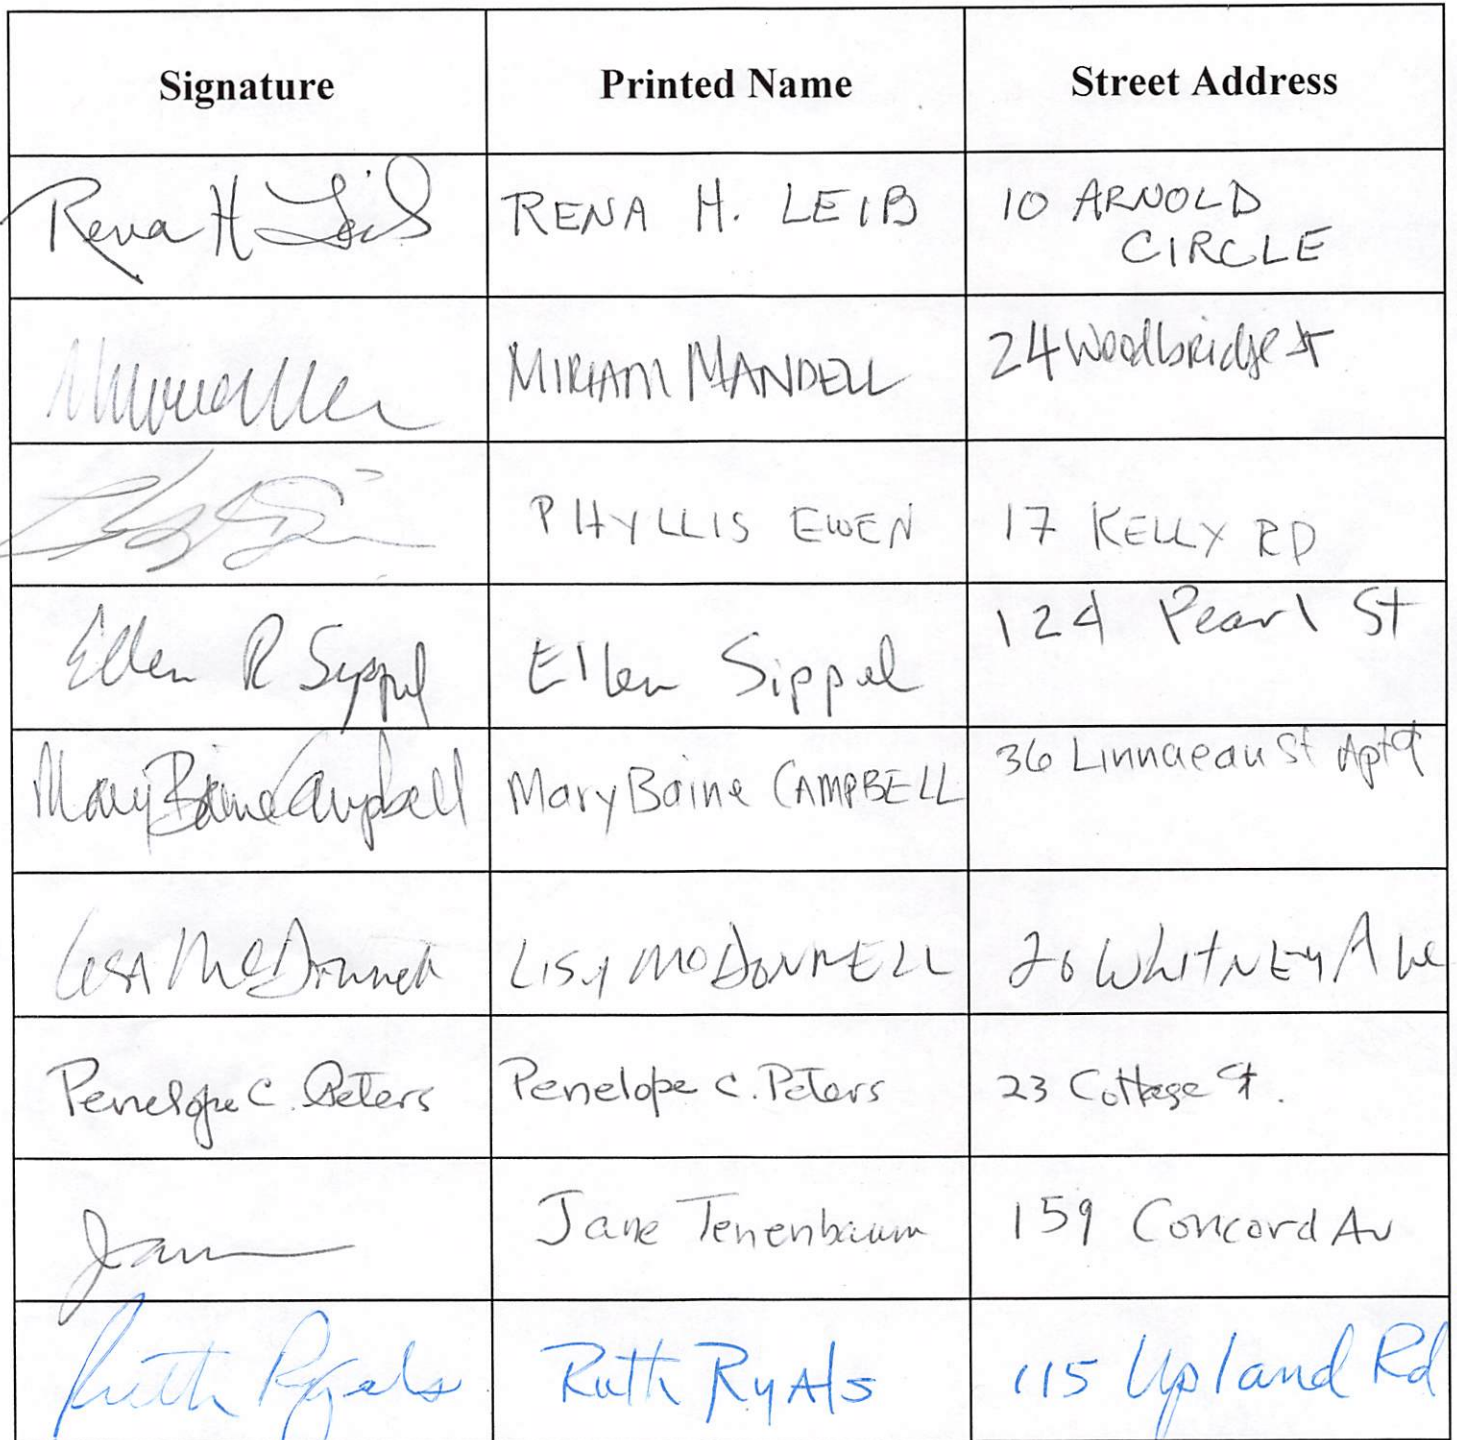 Signature Printed Name Street Address
Rena H Leib RENA H. LEIB 10 ARNOLD
CIRCLE
MIRIAM MANDELL 24 Woodbridge St
PHYLLIS EWEN 17 KELLY RD
Ellen R Sippel Ellen Sippel 124 Pearl St
Mary Baine Campbell Mary Baine CAMPBELL 36 Linnaean St Apt 9
Lisa McDonnell LISA MCDONNELL 26 WHITNEY Ave
Penelope C. Peters Penelope C. Peters 23 Cottage St.
Jane Tenenbaum 159 Concord Av
Ruth Ryals Ruth RyAls 115 Upland Rd